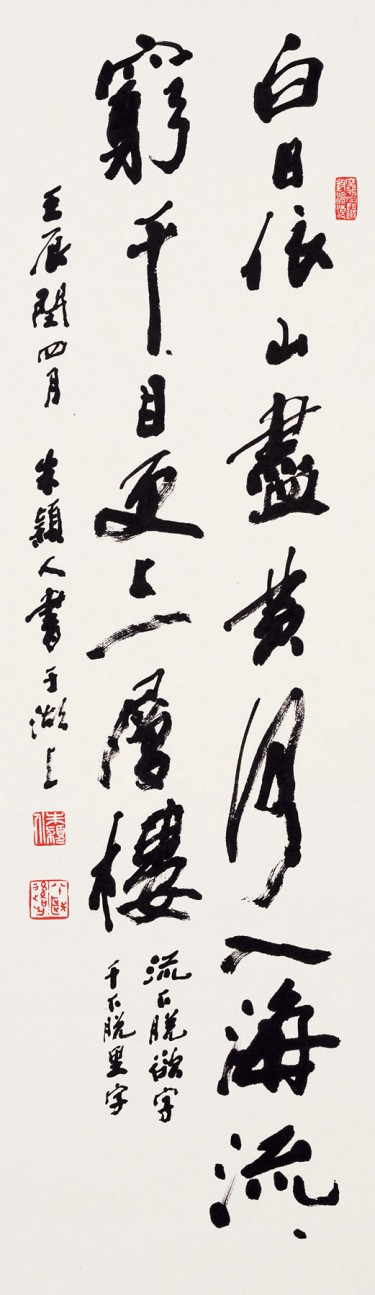 白日依山盡黃河入海流、
窮千、目更上一層樓
流下脫欲字
千下脫里字
壬辰閏四月 朱穎人書于湖上
朱穎人